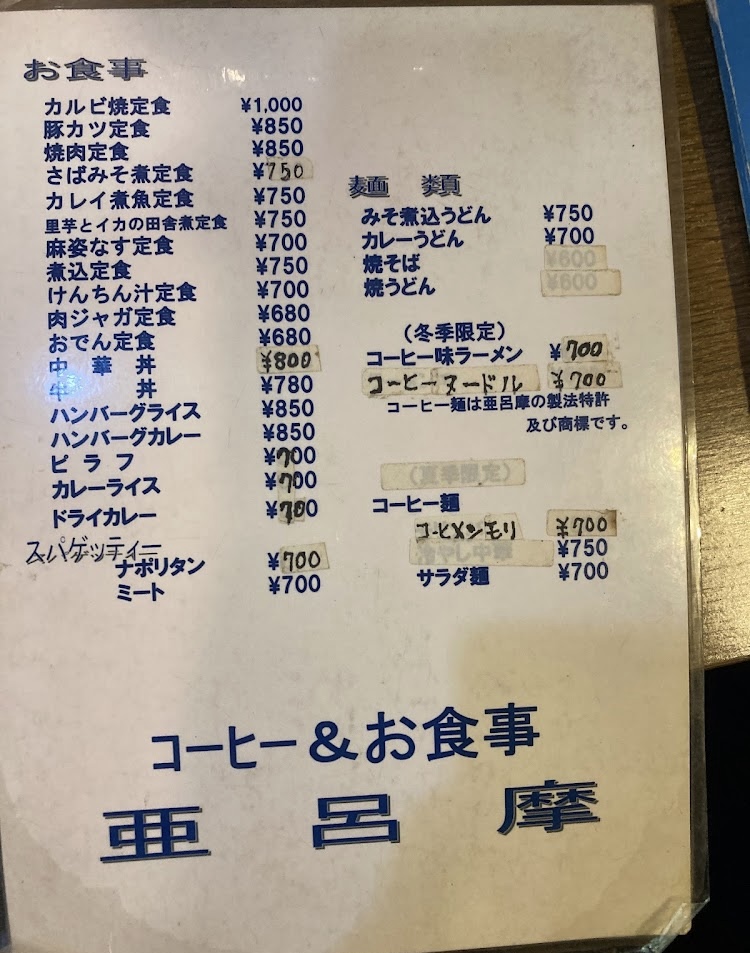 お食事
カルビ焼定食 ¥1,000
豚カツ定食 ¥850
焼肉定食 ¥850
さばみそ煮定食 ¥750
カレイ煮魚定食 ¥750
里芋とイカの田舎煮定食 ¥750
麻姿なす定食 ¥700
煮込定食 ¥750
けんちん汁定食 ¥700
肉ジャガ定食 ¥680
おでん定食 ¥680
中華丼 ¥800
牛丼 ¥780
ハンバーグライス ¥850
ハンバーグカレー ¥850
ピラフ ¥700
カレーライス ¥700
ドライカレー ¥700
スパゲッティー
ナポリタン ¥700
ミート ¥700
麺類
みそ煮込うどん ¥750
カレーうどん ¥700
焼そば ¥600
焼うどん ¥600
(冬季限定)
コーヒー味ラーメン ¥700
コーヒーヌードル ¥700
コーヒー麺は亜呂摩の製法特許
及び商標です。
(夏季限定)
コーヒー麺
コーヒメンモリ ¥700
冷やし中華 ¥750
サラダ麺 ¥700
コーヒー&お食事
亜呂摩